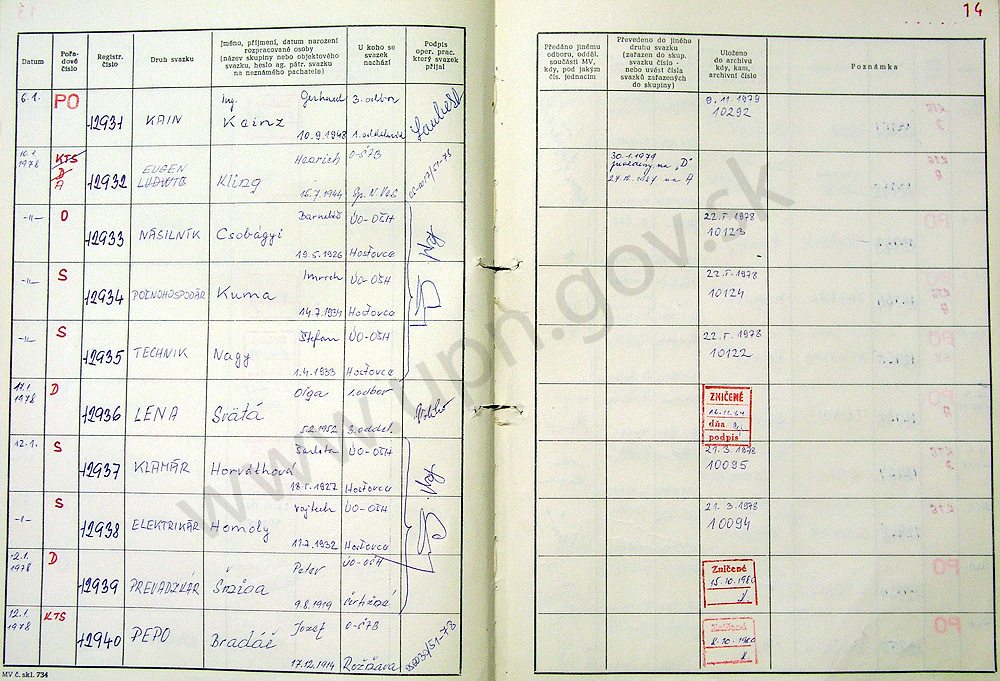 14
Datum
Pořadové číslo
Registr. číslo
Druh svazku
Jméno, příjmení, datum narození rozpracované osoby (název skupiny nebo objektového svazku, heslo ag. pátr. svazku na neznámého pachatele)
U koho se svazek nachází
Podpis oper. prac. který svazek přijal
Předáno jinému odboru, odděl. součásti MV, kdy, pod jakým čís. jednacím
Převedeno do jiného druhu svazku (zařazen do skup. svazku číslo - nebo uvést čísla svazků zařazených do skupiny)
Uloženo do archivu kdy, kam, archivní číslo
Poznámka
6.1. PO 12931 KAIN Ing. Gerhard Kainz 10.9.1948 3. odbor
9.11.1979 10292
10.1. 1978 KTS D A 12932 EUGEN LUDWIG Heinrich Kling 15.7.1944 O-ŠTB
30.1.1979 na "D" na A
-"- O 12933 NÁSILNÍK Csobágyi 19.5.1926 ÚO-OŠH Hosťovce
22.5.1978 10123
-"- S 12934 POĽNOHOSPODÁR Imrich Kuma 14.7.1934 ÚO-OŠH Hosťovce
22.5.1978 10124
-"- S 12935 TECHNIK Štefan Nagy 1.4.1933 ÚO-OŠH Hosťovce
22.5.1978 10122
11.1. 1978 D 12936 LENA Oľga Svätá 5.2.1952 1. odbor 3. oddel.
ZNIČENÉ
dňa
podpis
12.1. S 12937 KLAMÁR Šarlota Horváthová ÚO-OŠH Hosťovce
21.3.1978 10095
S 12938 ELEKTRIKÁR Vojtech Homoly 11.7.1932 ÚO-OŠH Hosťovce
21.3.1978 10094
12.1. 1978 D 12939 PREVADZKÁR Peter 9.8.1919 ÚO-OŠH
Zničené
15.10.1980
12.1. 1978 KTS 12940 PEPO Jozef Bradáč 17.12.1914 O-ŠTB Rožňava
Zničené
MV č. skl. 734
www.upn.gov.sk